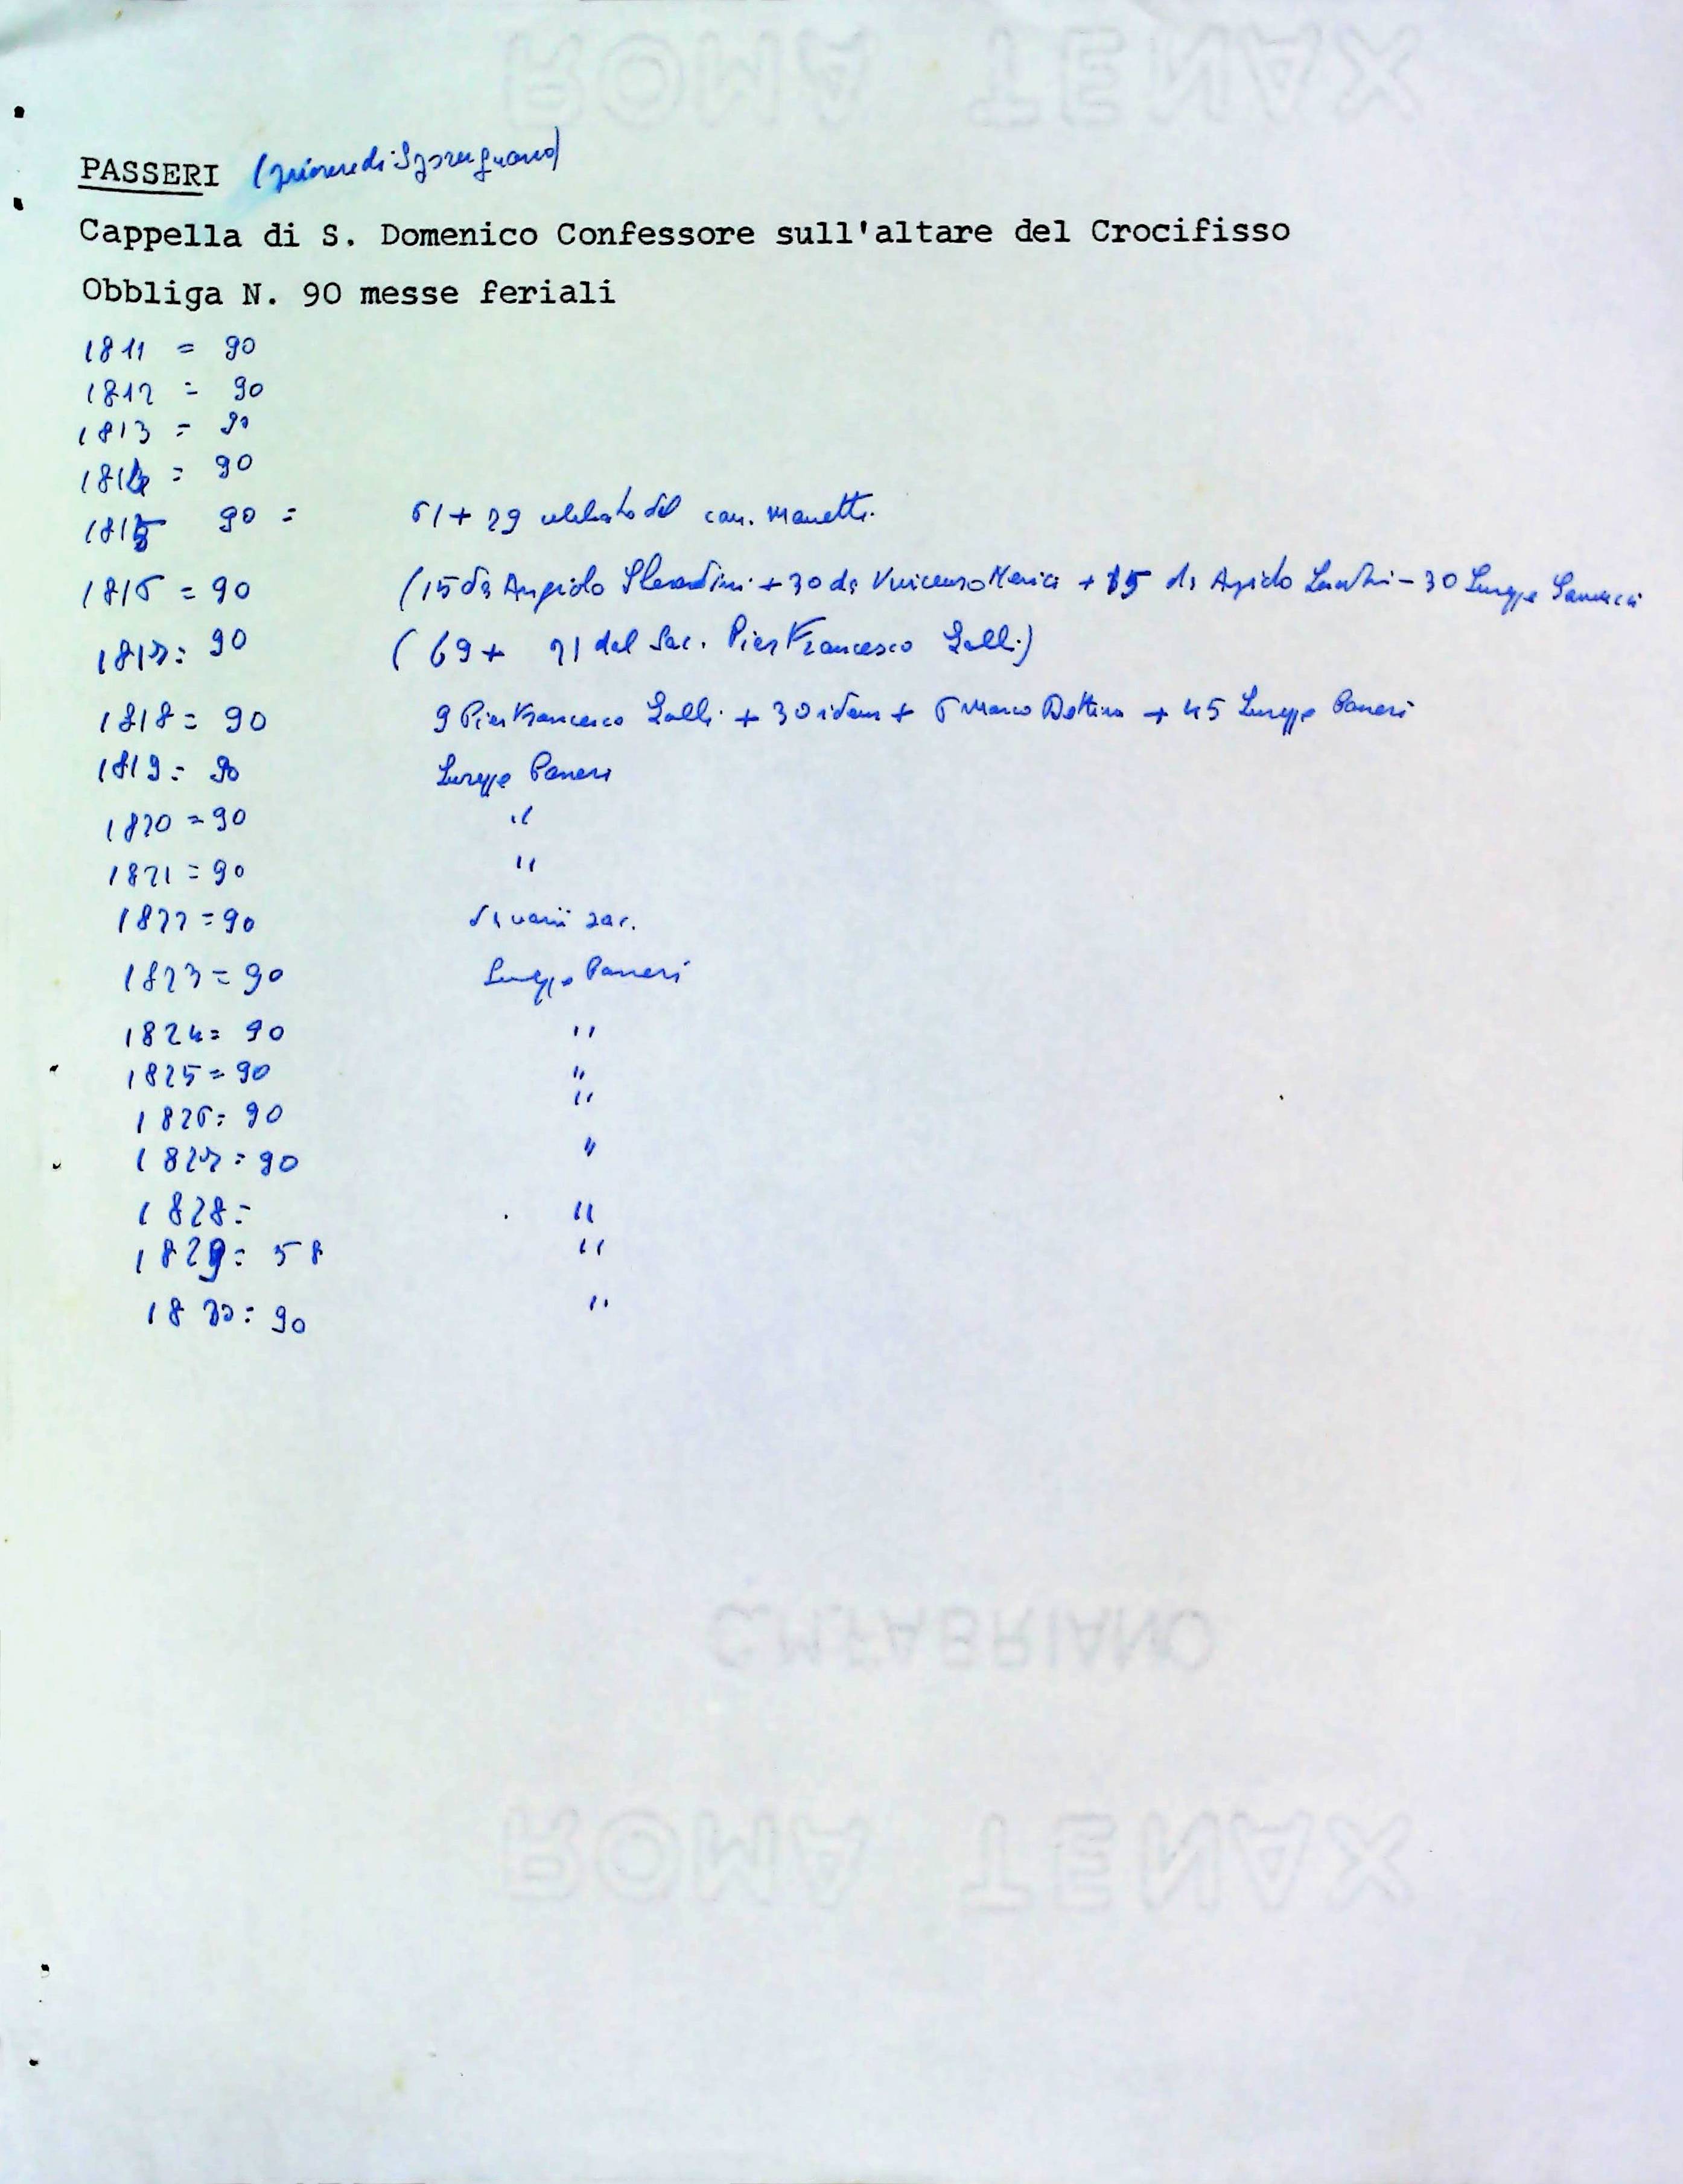 ROMA TENAX
PASSERI (priore di Sprugnano)
Cappella di S. Domenico Confessore sull'altare del Crocifisso
Obbliga N. 90 messe feriali
1811 = 90
1812 = 90
1813 = 90
1814 = 90
1815 90 = 61 + 29 can. Manetti.
1816 = 90 (15 da Angiolo + 30 da + 15 da Angiolo - 30
1817 = 90 (69 + 21 dal Sac. Pier Francesco Galli)
1818 = 90 9 Pier Francesco Galli + 30 idem + 6 Marco + 45 Giuseppe Passeri
1819 = 90 Giuseppe Passeri
1820 = 90 "
1821 = 90 "
1822 = 90 da varii sac.
1823 = 90 Giuseppe Passeri
1824 = 90 "
1825 = 90 "
1826 = 90 "
1827 = 90 "
1828 = "
1829 = 58 "
1830 = 90 "
C.M.FABRIANO
ROMA TENAX